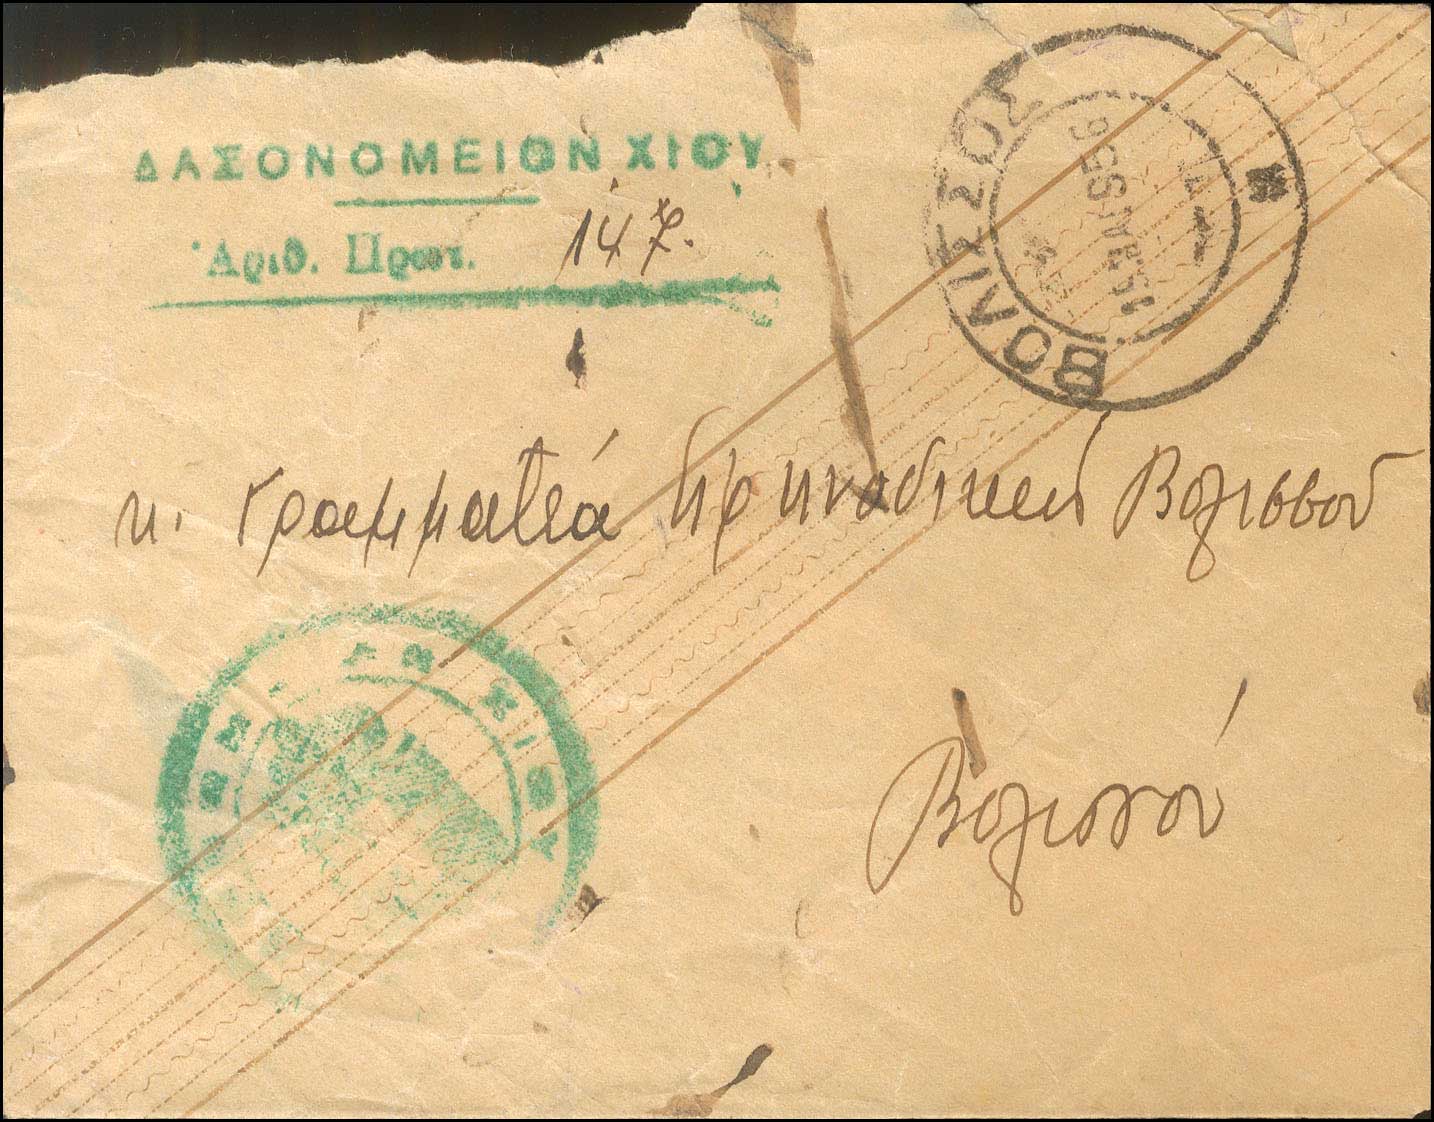 ΔΑΣΟΝΟΜΕΙΟΝ ΧΙΟΥ
Ἀριθ. Πρωτ. 147.
ΒΟΛΙΣΣΟΣ
15 ΙΑΝ 56
κ. Γραμματέα Εἰρηνοδικείου Βολισσοῦ
Βολισσοῦ